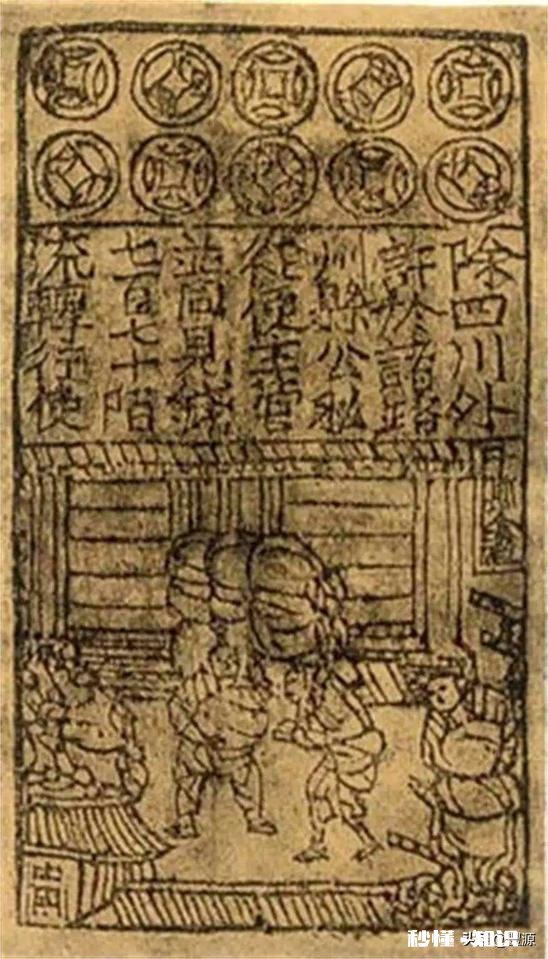 除四川外
許於諸路
州縣公私
從便主管
並同見錢
七百七十陌
流轉行使
秒懂 知识